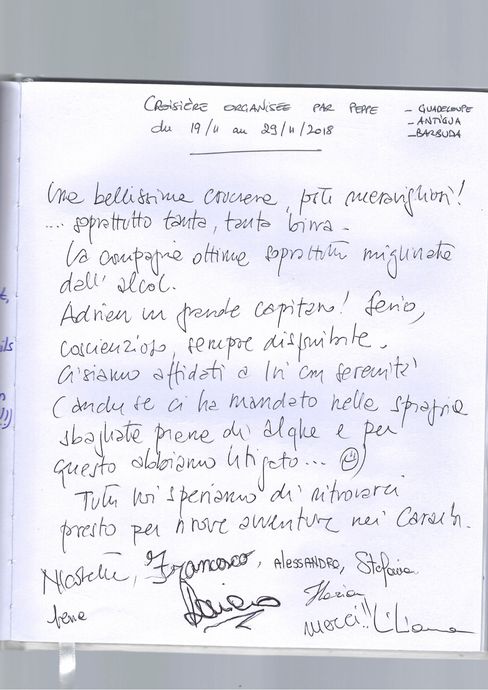 CROISIÈRE ORGANISÉE PAR PEPPE
du 19/11 au 29/11/2018
- GUADELOUPE
- ANTIGUA
- BARBUDA
Una bellissima crociera, posti meravigliosi!
.... soprattutto tanta, tanta birra.
La compagnia ottima soprattutto migliorata
dall'alcol.
Adrien un grande capitano! Serio,
coscienzioso, sempre disponibile.
Ci siamo affidati a lui con serenità
(anche se ci ha mandato nelle spiaggie
sbagliate piene di alghe e per
questo abbiamo litigato... ☺)
Tutti noi speriamo di ritrovarci
presto per nuove avventure nei Caraibi.
Francesco, ALESSANDRO, Stefania
Ilaria
Irene
merci!! Liliana